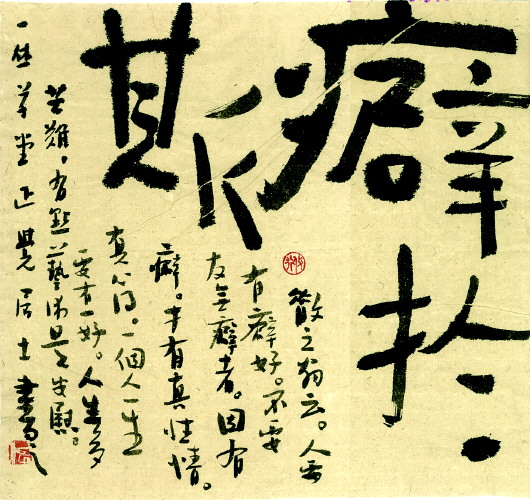 癖於
斯
散之翁云。人要
有癖好。不要
友無癖者。因有
癖。才有真性情。
真心得。一個人一生
要有一好。人生多
苦難，有點藝術是安慰
草堂正覺居士書